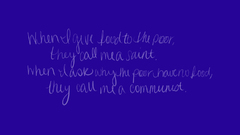 When I give food to the poor,
they call me a saint.
When I ask why the poor have no food,
they call me a communist.